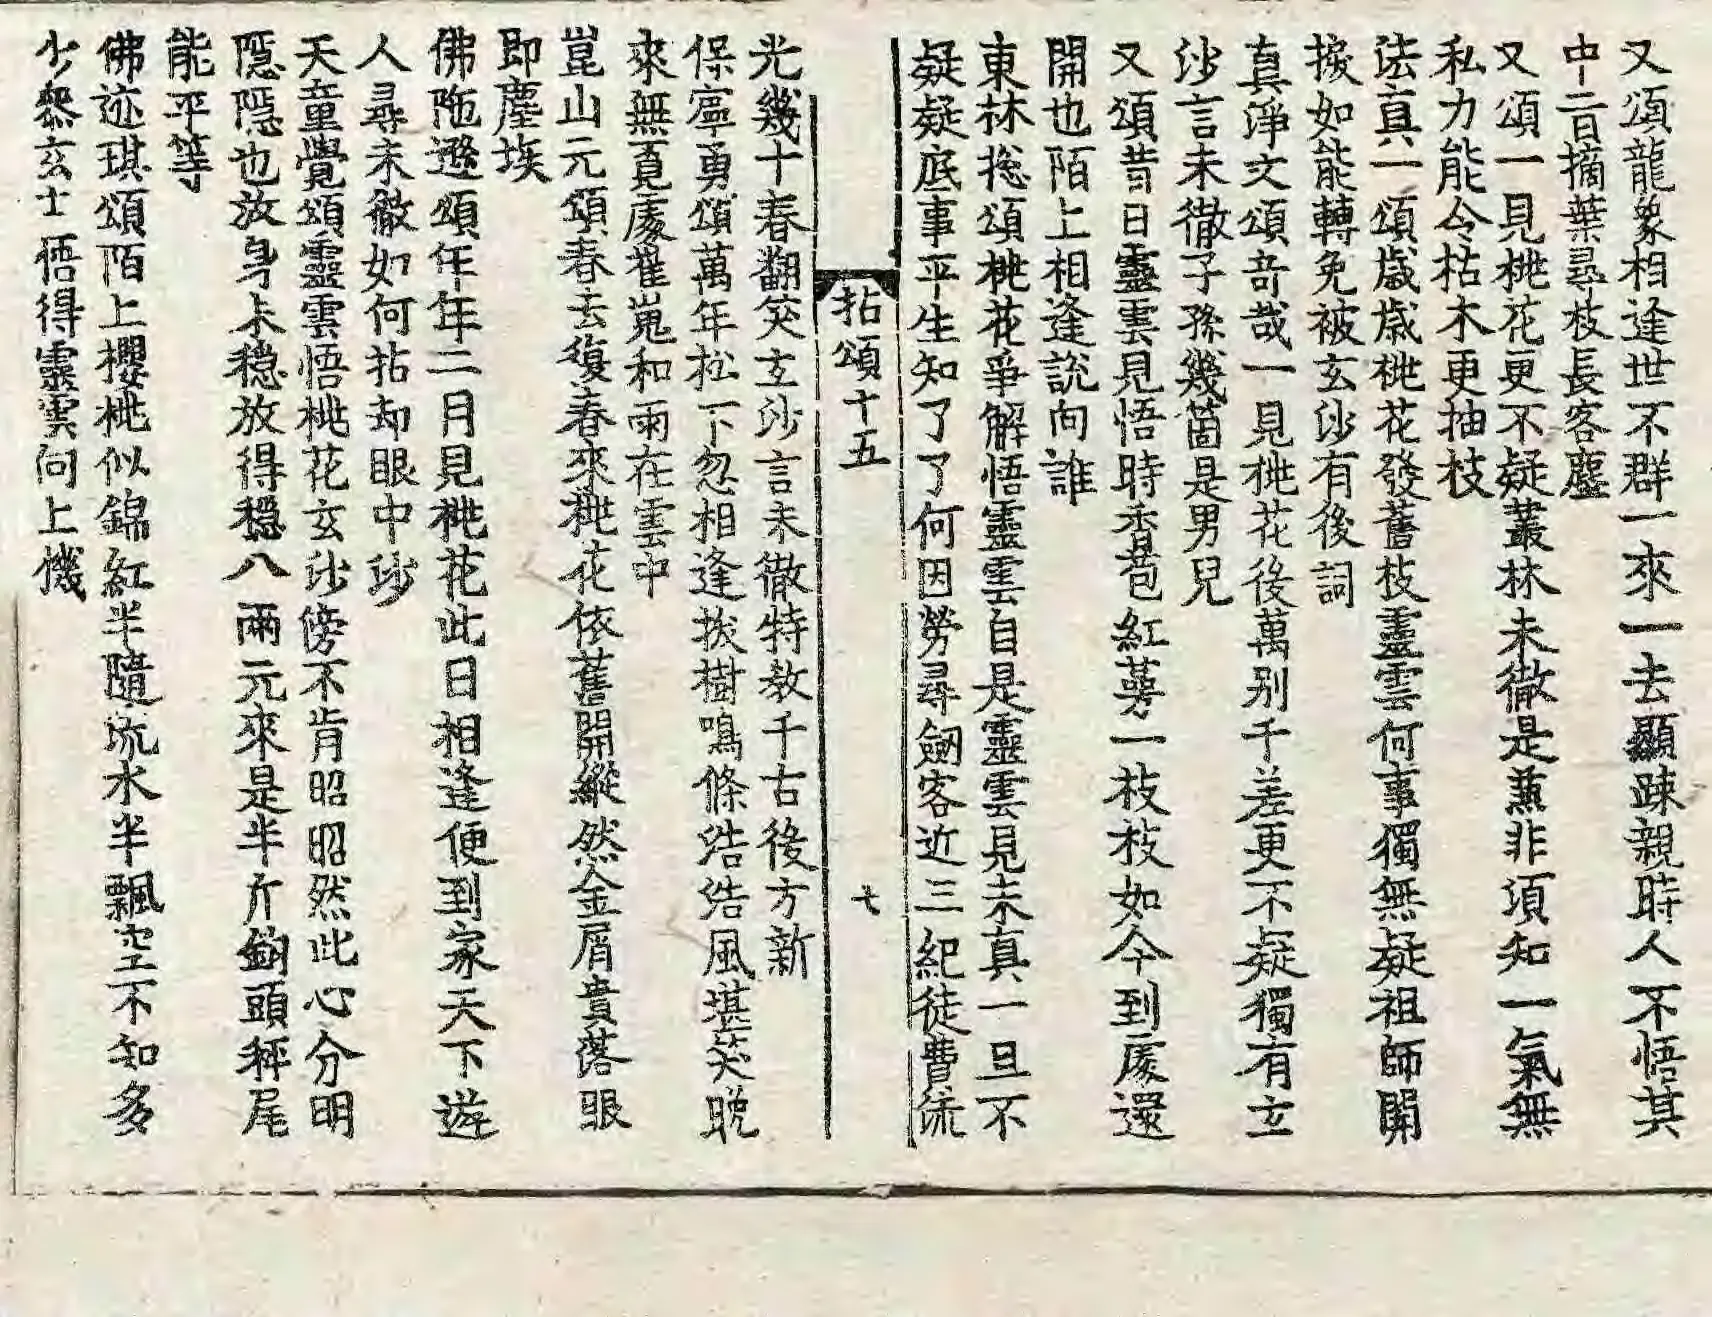 又頌龍象相逢世不群一來一去顯踈親時人不悟其
中旨摘葉尋枝長客塵
又頌一見桃花更不疑叢林未徹是兼非須知一氣無
私力能令枯木更抽枝
法真一頌歲歲桃花發舊枝靈雲何事獨無疑祖師關
捩如能轉免被玄沙有後詞
真淨文頌奇哉一見桃花後萬别千差更不疑獨有玄
沙言未徹子孫幾箇是男兒
又頌昔日靈雲見悟時香苞紅萼一枝枝如今到處還
開也陌上相逢說向誰
東林揔頌桃花爭解悟靈雲自是靈雲見未真一旦不
疑疑底事平生知了了何因勞尋劒客近三紀徒費流
拈頌十五 七
光幾十春翻笑玄沙言未徹特敎千古後方新
保寧勇頌萬年松下忽相逢拔樹鳴條浩浩風堪笑晩
來無覔處嶊嵬和雨在雲中
崑山元頌春去復春來桃花依舊開縱然金屑貴落眼
即塵埃
佛陁遜頌年年二月見桃花此日相逢便到家天下遊
人尋未徹如何拈却眼中沙
天童覺頌靈雲悟桃花玄沙傍不肯昭昭然此心分明
隱隱也放身未穩放得穩八兩元來是半斤鉤頭秤尾
能平等
佛迹琪頌陌上櫻桃似錦紅半隨流水半飄空不知多
少叅玄士悟得靈雲向上機